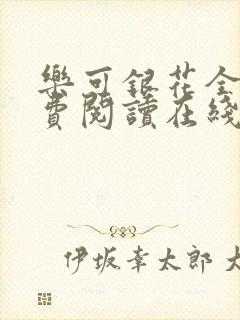 樂可銀花全
費閱讀在綫
伊坂幸太郎 大